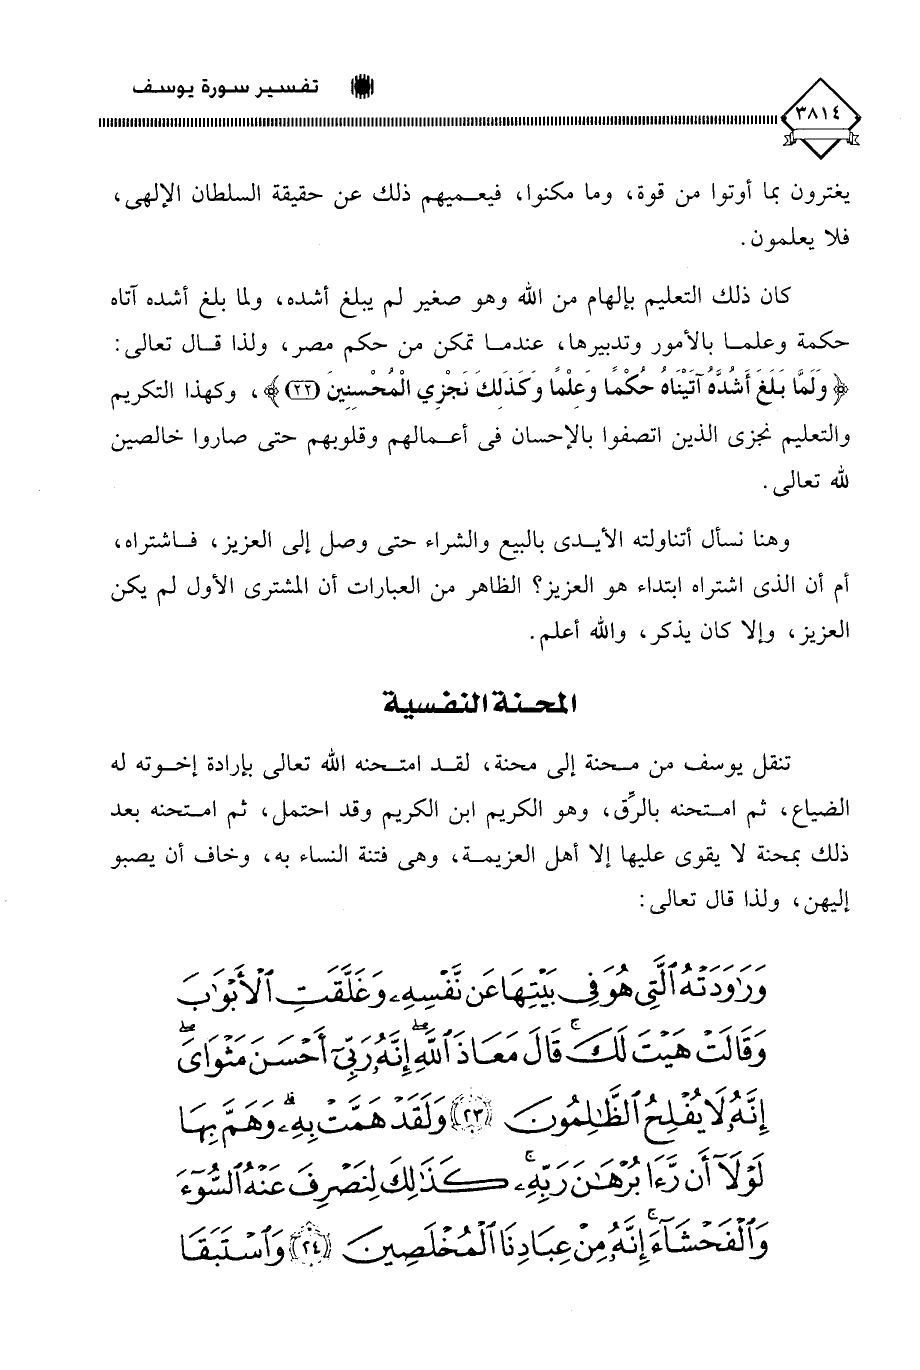 تفسير سورة يوسف
٣٨١٤
يغترون بما أوتوا من قوة، وما مكنوا، فيعميهم ذلك عن حقيقة السلطان الإلهى،
فلا يعلمون.
كان ذلك التعليم بإلهام من الله وهو صغير لم يبلغ أشده، ولما بلغ أشده آتاه
حكمة وعلما بالأمور وتدبيرها، عندما تمكن من حكم مصر، ولذا قال تعالى:
﴿وَلَمَّا بَلَغَ أَشُدَّهُ آتَيْنَاهُ حُكْمًا وَعِلْمًا وَكَذَلِكَ نَجْزِي الْمُحْسِنِينَ (٢٢)﴾، وكهذا التكريم
والتعليم نجزى الذين اتصفوا بالإحسان فى أعمالهم وقلوبهم حتى صاروا خالصين
لله تعالى.
وهنا نسأل أتناولته الأيدى بالبيع والشراء حتى وصل إلى العزيز، فاشتراه،
أم أن الذى اشتراه ابتداء هو العزيز؟ الظاهر من العبارات أن المشترى الأول لم يكن
العزيز، وإلا كان يذكر، والله أعلم.
المحنة النفسية
تنقل يوسف من محنة إلى محنة، لقد امتحنه الله تعالى بإرادة إخوته له
الضياع، ثم امتحنه بالرِّق، وهو الكريم ابن الكريم وقد احتمل، ثم امتحنه بعد
ذلك بمحنة لا يقوى عليها إلا أهل العزيمة، وهى فتنة النساء به، وخاف أن يصبو
إليهن، ولذا قال تعالى:
وَرَٰوَدَتْهُ ٱلَّتِى هُوَ فِى بَيْتِهَا عَن نَّفْسِهِۦ وَغَلَّقَتِ ٱلْأَبْوَٰبَ
وَقَالَتْ هَيْتَ لَكَ ۚ قَالَ مَعَاذَ ٱللَّهِ ۖ إِنَّهُۥ رَبِّىٓ أَحْسَنَ مَثْوَاىَ ۖ
إِنَّهُۥ لَا يُفْلِحُ ٱلظَّٰلِمُونَ ﴿٢٣﴾ وَلَقَدْ هَمَّتْ بِهِۦ ۖ وَهَمَّ بِهَا
لَوْلَآ أَن رَّءَا بُرْهَٰنَ رَبِّهِۦ ۚ كَذَٰلِكَ لِنَصْرِفَ عَنْهُ ٱلسُّوٓءَ
وَٱلْفَحْشَآءَ ۚ إِنَّهُۥ مِنْ عِبَادِنَا ٱلْمُخْلَصِينَ ﴿٢٤﴾ وَٱسْتَبَقَا